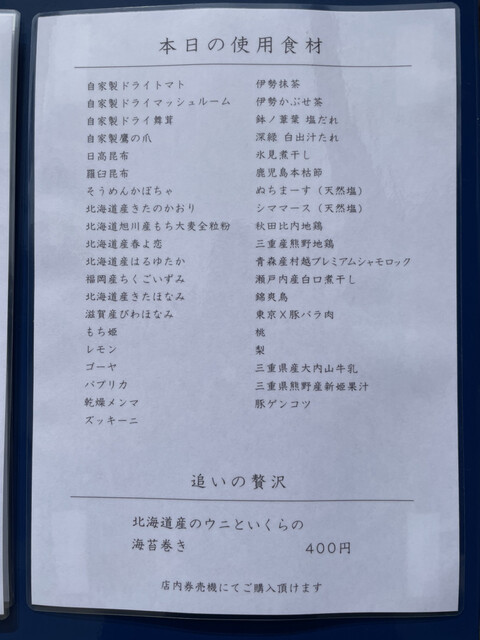 本日の使用食材
自家製ドライトマト
自家製ドライマッシュルーム
自家製ドライ舞茸
自家製鷹の爪
日高昆布
羅臼昆布
そうめんかぼちゃ
北海道産きたのかおり
北海道旭川産もち大麦全粒粉
北海道産春よ恋
北海道産はるゆたか
福岡産ちくごいずみ
北海道産きたほなみ
滋賀産びわほなみ
もち姫
レモン
ゴーヤ
パプリカ
乾燥メンマ
ズッキーニ
伊勢抹茶
伊勢かぶせ茶
鉢ノ葦葉 塩だれ
深緑 白出汁たれ
氷見煮干し
鹿児島本枯節
ぬちまーす（天然塩）
シママース（天然塩）
秋田比内地鶏
三重産熊野地鶏
青森産村越プレミアムシャモロック
瀬戸内産白口煮干し
錦爽鳥
東京X豚バラ肉
桃
梨
三重県産大内山牛乳
三重県熊野産新姫果汁
豚ゲンコツ
追いの贅沢
北海道産のウニといくらの
海苔巻き 400円
店内券売機にてご購入頂けます